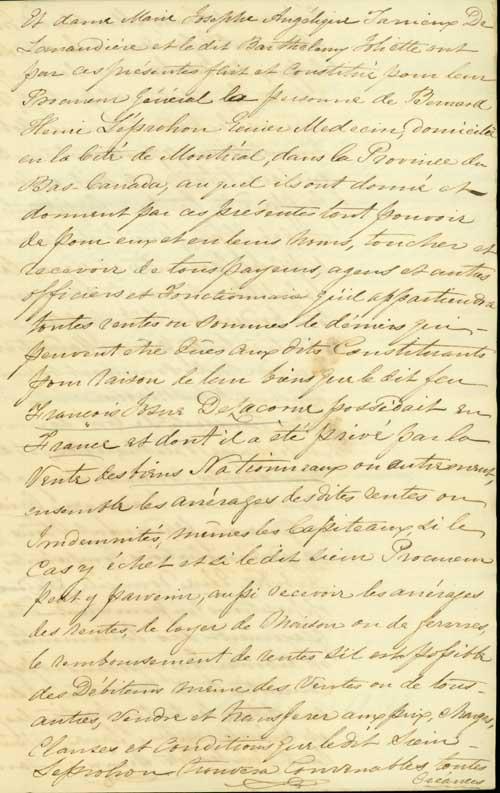 Et dame Marie Josephe Angélique Tarrieux De
Lanaudière et le dit Barthelemy Joliette ont
par ces présentes fait et Constitué pour leur
Procureur Général la personne de Bernard
Henri Leprohon Ecuier Medecin, domicilié
en la Cité de Montréal, dans la Province du
Bas-Canada, auquel ils ont donné et
donnent par ces présentes tout pouvoir
de pour eux et en leurs noms, toucher et
recevoir de tous payeurs, agens et autres
officiers et Fonctionnaires qu'il appartiendra
toutes rentes ou sommes de deniers qui
peuvent être dûes aux dits Constituants
pour raison de leur biens que le dit feu
François Josué DeLacorne possédait en
France et dont il a été privé par la
Vente des biens Nationneaux ou autrement,
ensemble les arrérages desdites rentes ou
Indemnités, mêmes les Capiteaux si le
Cas y échet et si le dit sieur Procureur
peut y parvenir, aussi recevoir les arrérages
des rentes, de loyer de Maison ou de fermes,
le remboursement de rentes s'il est possible
des Débiteurs même des Ventes ou de tous
autres, Vendre et transferer aux prix, charges,
Clauses et Conditions que le dit Sieur
Leprohon trouvera Convenables, toutes
Créances